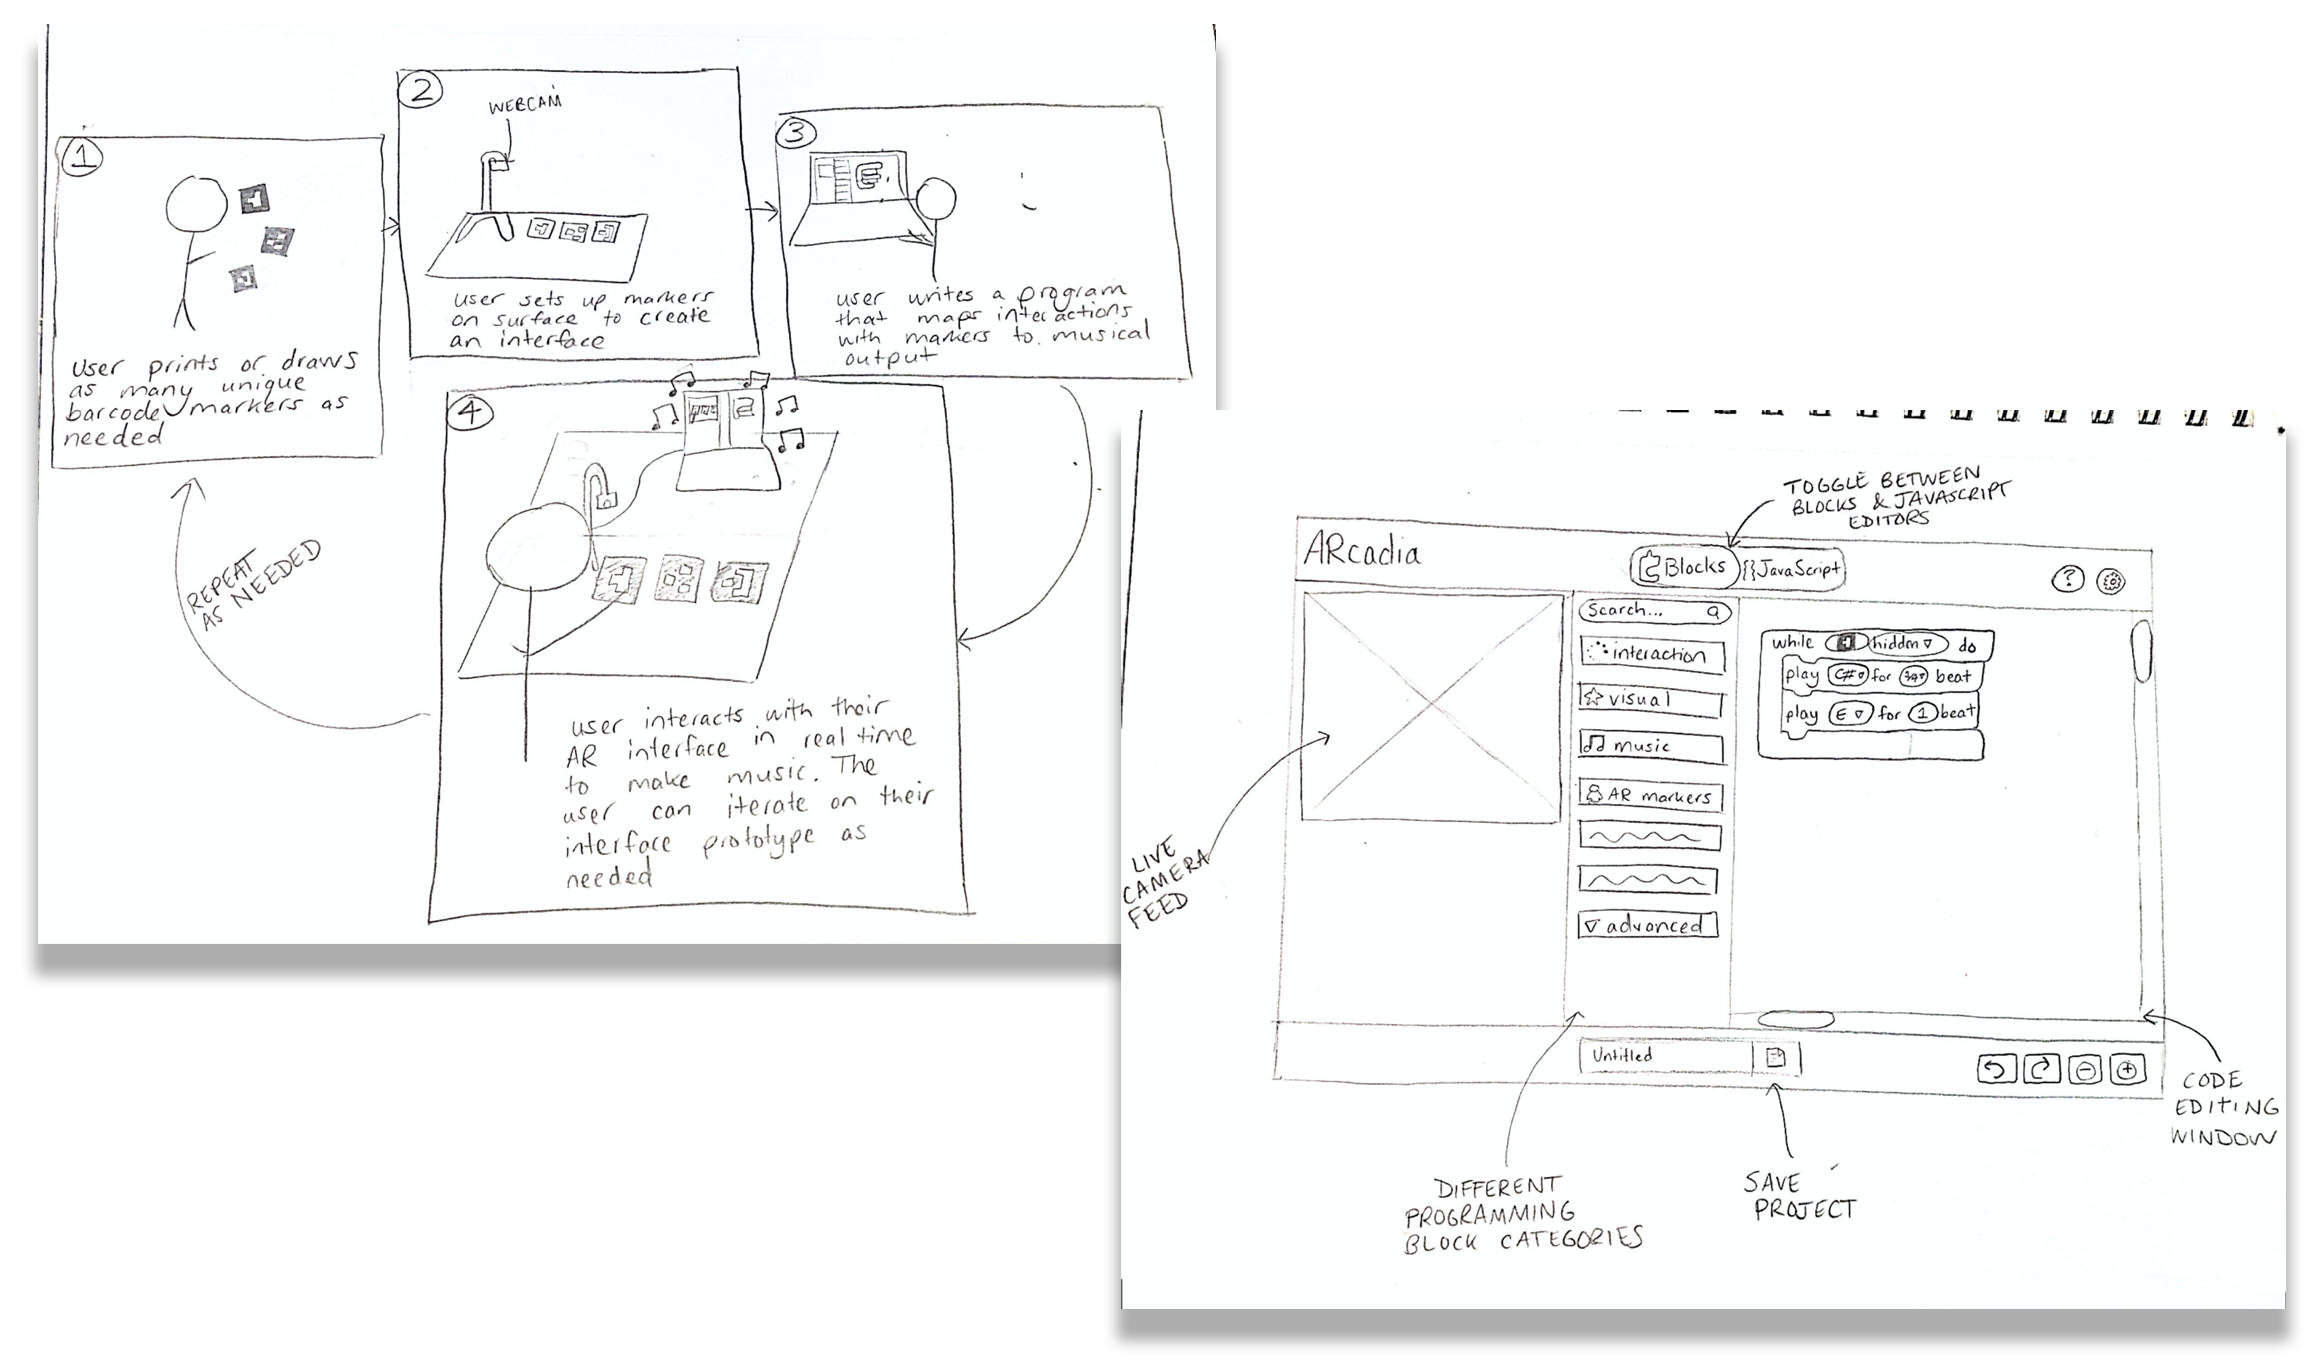 1
User prints or draws
as many unique
barcode markers as
needed
2
WEBCAM
user sets up markers
on surface to create
an interface
3
user writes a program
that maps interactions
with markers to musical
output
4
user interacts with their
AR interface in real time
to make music. The
user can iterate on their
interface prototype as
needed
REPEAT
AS NEEDED
TOGGLE BETWEEN
BLOCKS & JAVASCRIPT
EDITORS
ARcadia
Blocks
{}JavaScript
?
Search...
interaction
visual
music
AR markers
advanced
while hidden do
play C# for 3/4 beat
play E for 1 beat
LIVE
CAMERA
FEED
Untitled
CODE
EDITING
WINDOW
DIFFERENT
PROGRAMMING
BLOCK CATEGORIES
SAVE
PROJECT